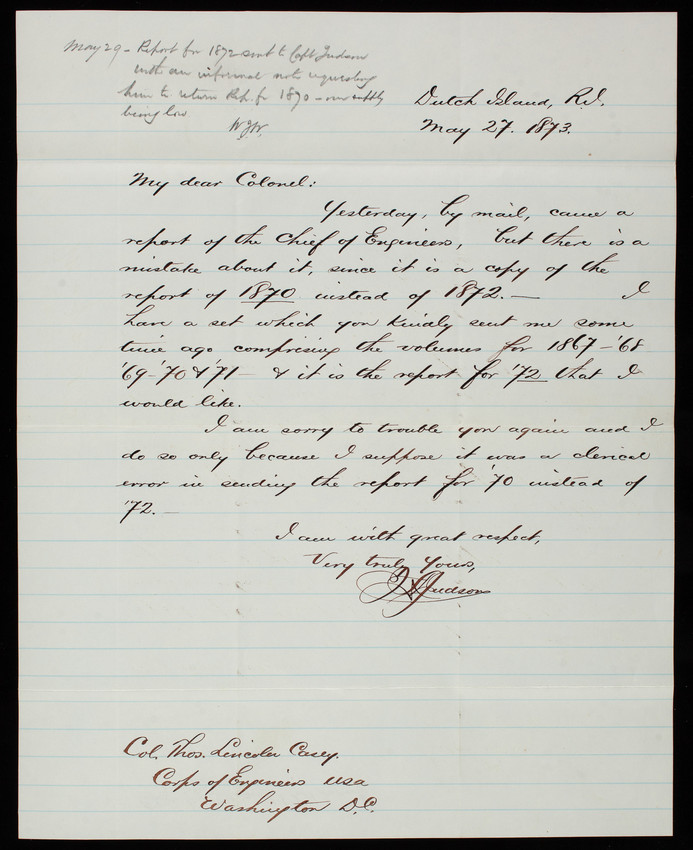 May 29 - Report for 1872 sent to Capt Judson
with an informal note requesting
him to return Rep. for 1870 - our supply
being low
W.J.W.
Dutch Island, R.I.
May 27. 1873.
My dear Colonel:
Yesterday, by mail, came a
report of the Chief of Engineers, but there is a
mistake about it, since it is a copy of the
report of 1870 instead of 1872. — I
have a set which you kindly sent me some
time ago comprising the volumes for 1867 - '68
'69 - '70 & '71 - & it is the report for '72 that I
would like.
I am sorry to trouble you again and I
do so only because I suppose it was a clerical
error in sending the report for '70 instead of
'72. —
I am with great respect,
Very truly Yours,
Judson
Col. Thos. Lincoln Casey.
Corps of Engineers USA
Washington D.C.